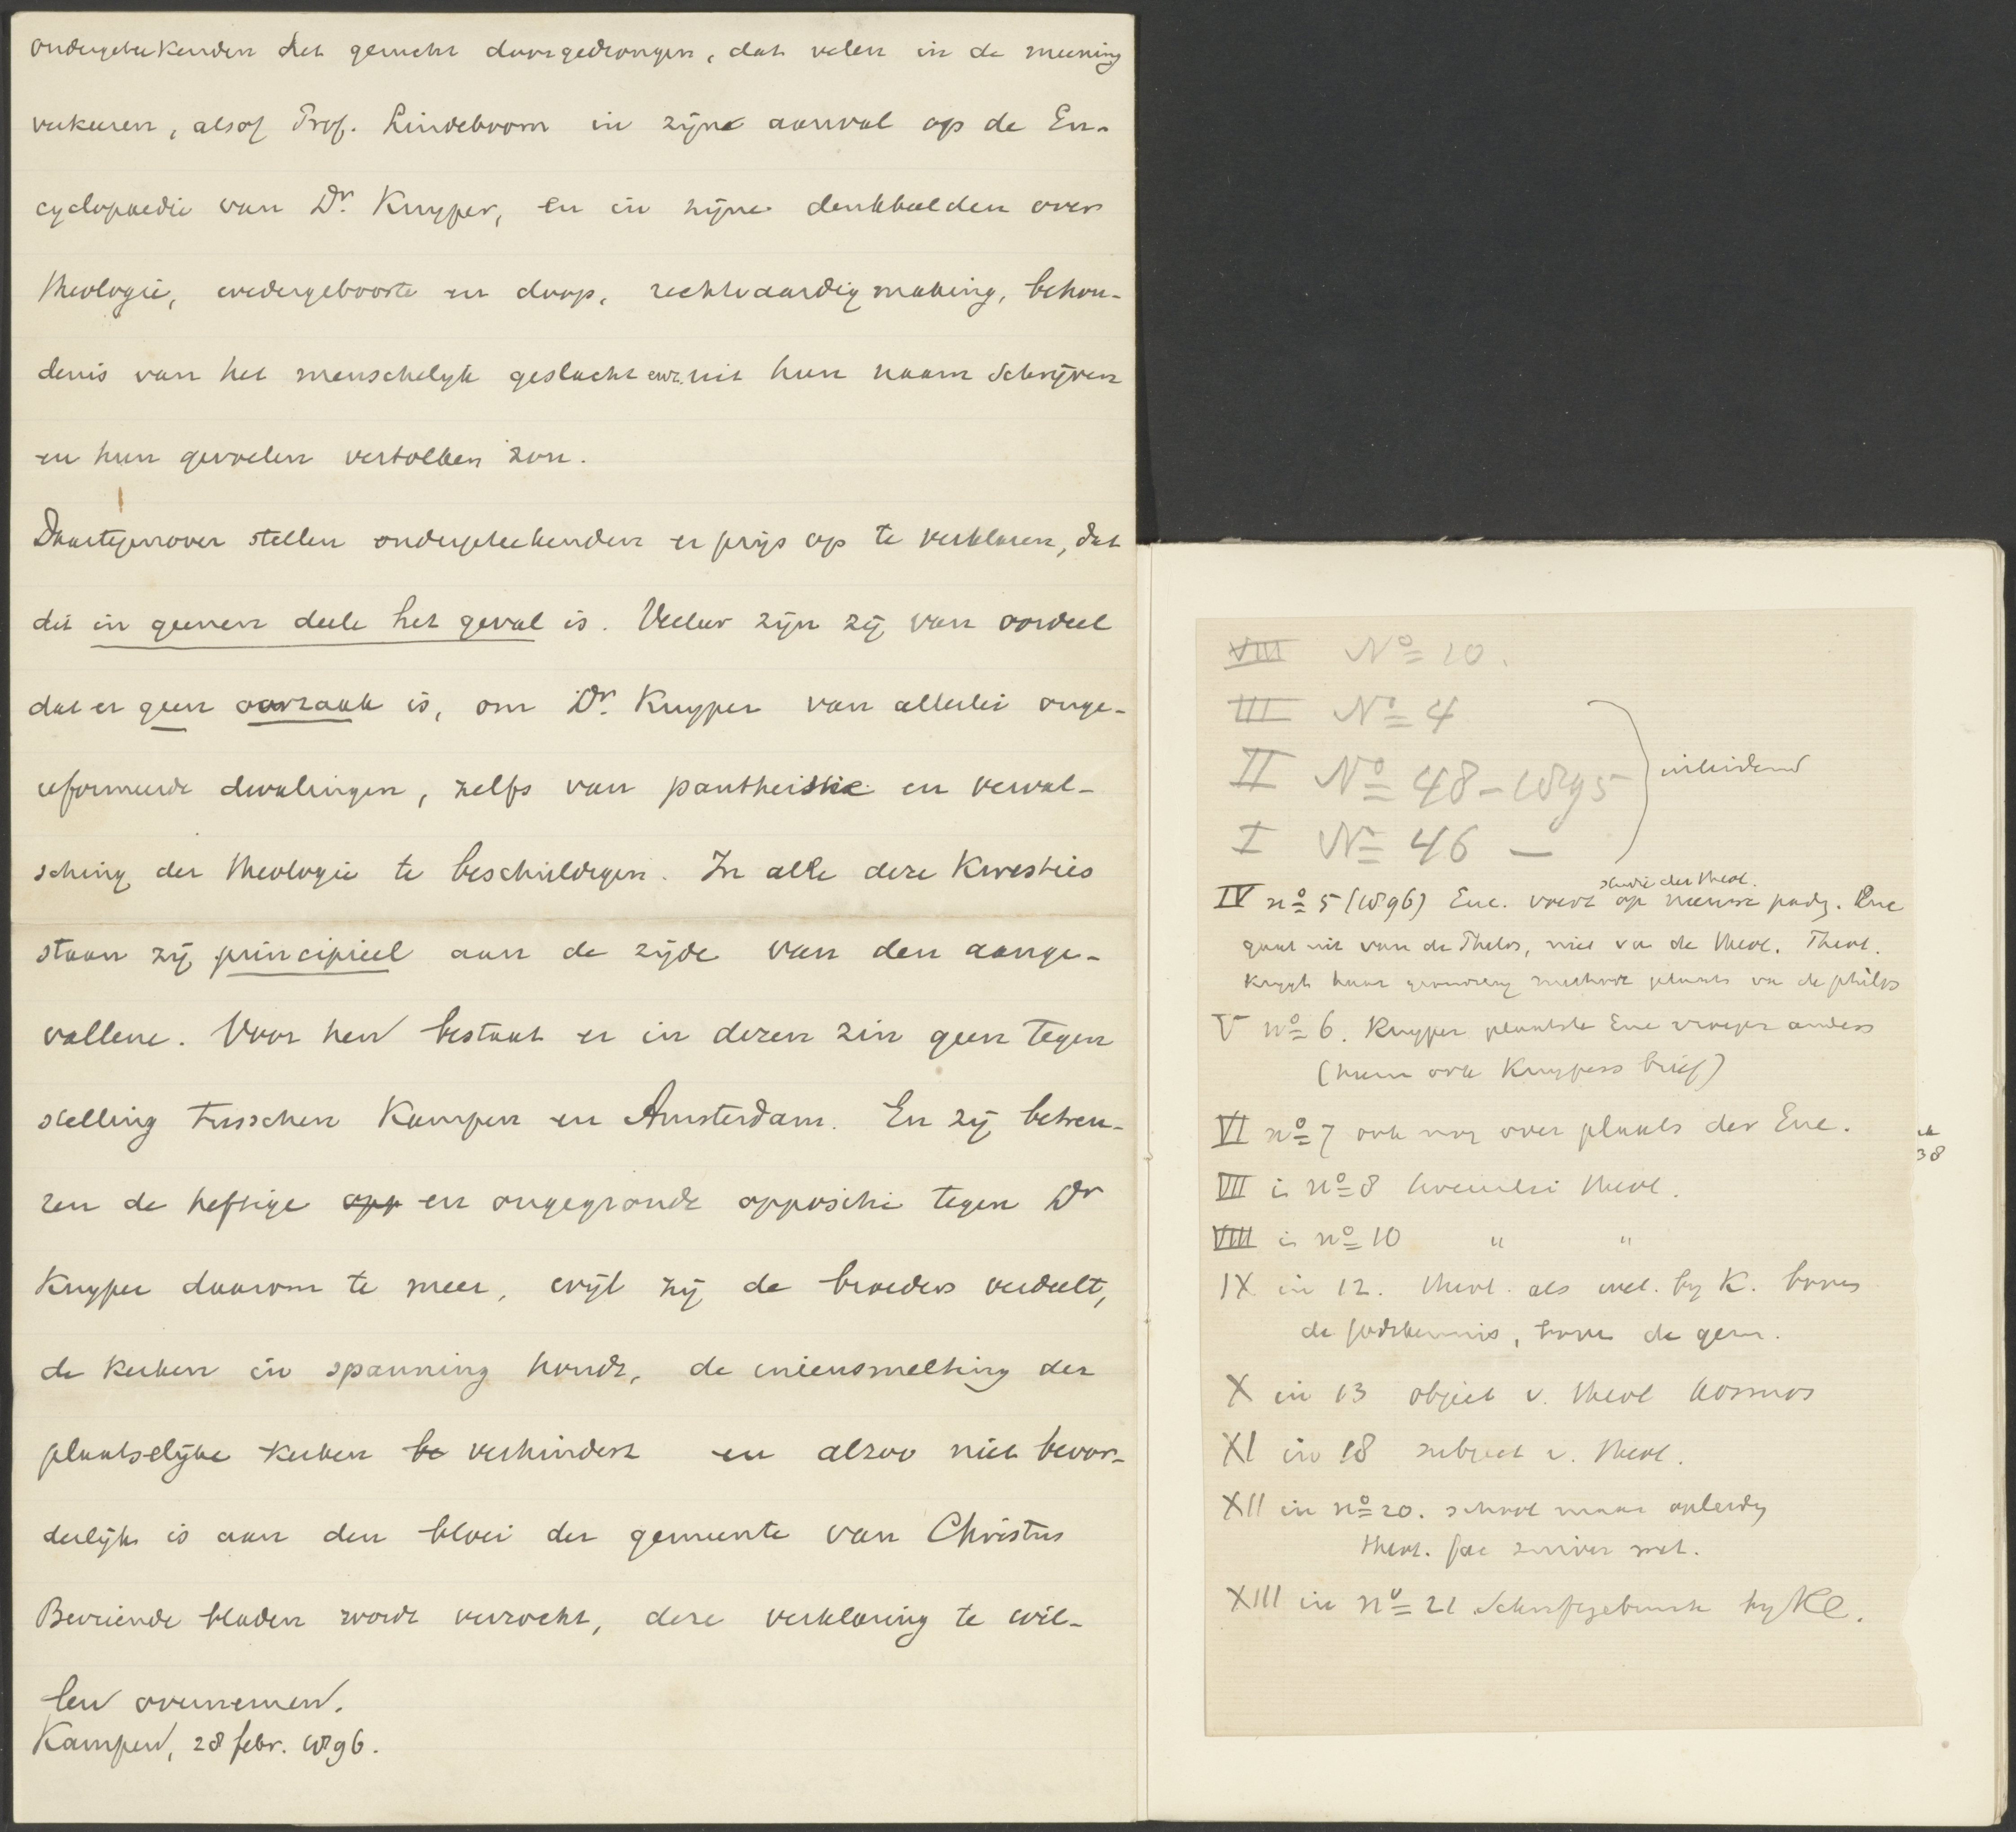 ondergeteekenden het gerucht doorgedrongen, dat velen in de meening
verkeeren, alsof Prof. Lindeboom in zijne aanval op de En-
cyclopaedie van Dr. Kuyper, en in zijne denkbeelden over
theologie, wedergeboorte en doop, rechtvaardigmaking, behou-
denis van het menschelijk geslacht enz. uit hun naam schrijven
en hun gevoelen vertolken zou.
Daartegenover stellen ondergeteekenden er prijs op te verklaren, dat
dit in geenen deele het geval is. Veeleer zijn zij van oordeel
dat er geen oorzaak is, om Dr. Kuyper van allerlei onge-
reformeerde dwalingen, zelfs van pantheistie en verval-
sching der theologie te beschuldigen. In alle deze kwesties
staan zij principieel aan de zijde van den aange-
vallene. Voor hen bestaat er in dezen zin geen tegen
stelling tusschen Kampen en Amsterdam. En zij betreu-
ren de heftige opp en ongegronde oppositie tegen Dr
Kuyper daarom te meer, wijl zij de broeders verdeelt,
de kerken in spanning houdt, de ineensmelting der
plaatselijke kerken be verhindert en alzoo niet bevor-
derlijk is aan den bloei der gemeente van Christus
Bevriende bladen wordt verzocht, deze verklaring te wil-
len overnemen.
Kampen, 28 febr. 1896.
VIII No 10.
III No 4
II No 48 - 1895
inleidend
I No 46 —
studie der theol.
IV no 5 (1896) Enc. voert op nieuwe pady. Enc
gaat uit van de Philos, niet va de theol. Theol.
krijgt haar methode plaats va de philos
V no 6. Kuyper plaatste Enc vroeger anders
(hierin ook Kuypers brief)
VI no 7 ook nog over plaats der Enc.
VII in no 8 tweeërlei theol.
VIII in no 10 " "
IX in 12. theol. als wet. by K. boven
de godskennis, boven de gem.
X in 13 object v. theol kosmos
XI in 18 subject v. theol.
XII in no 20. school maar opleidg
theol. fac zuiver wet.
XIII in no 21 Schriftgebruik by K.
38